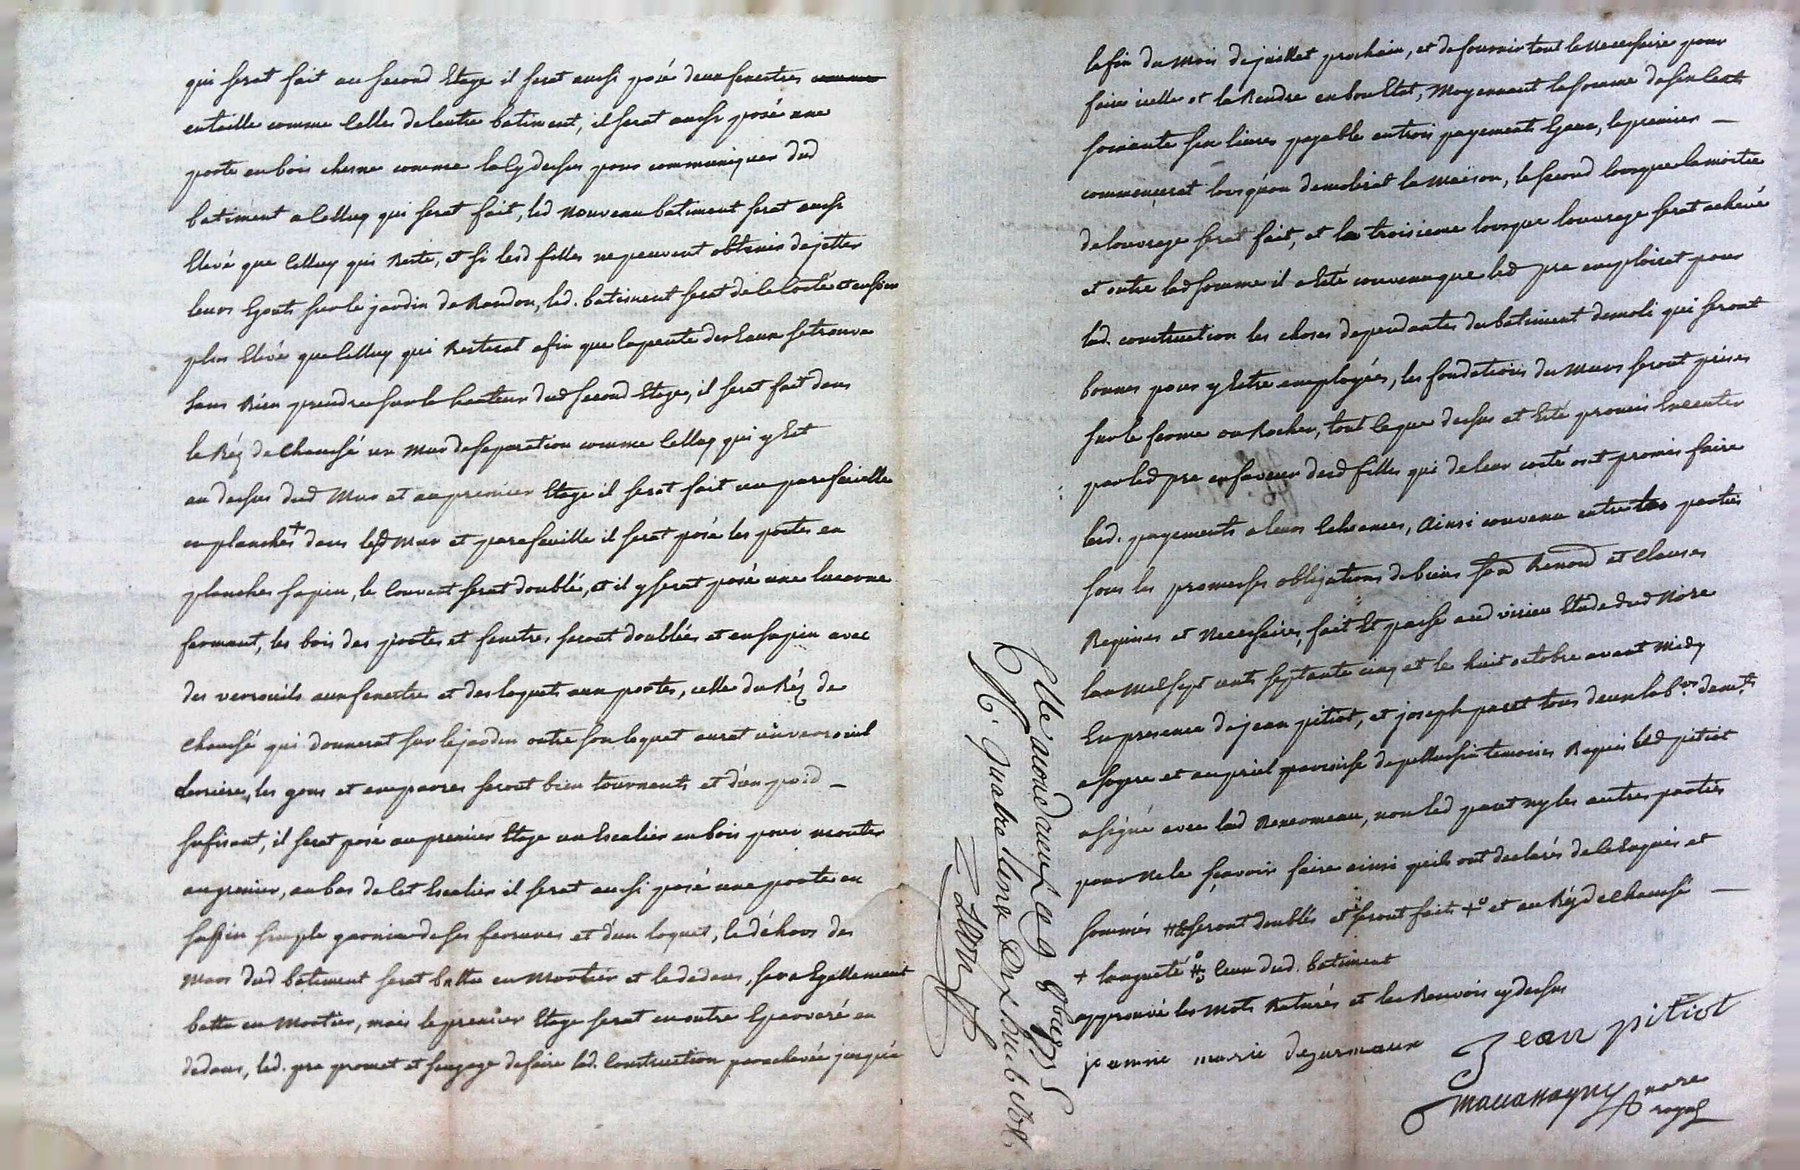 qui serat fait au second Etage il serat aussi posé deux fenestres
entaille comme Celles de lautre batiment, il serat aussi posé une
porte en bois chesne comme la Cy dessus pour communiquer dud
batiment a Celluy qui serat fait, led nouveau batiment serat aussi
Elevé que Celluy qui Reste, et si lesd filles ne peuvent obtenir de jetter
leurs Egouts sur le jardin de Randon, led. batiment serat de le Costé
plus Elevé que Celluy qui Resterat afin que la pente des Eaux se trouve
sans Rien prendre sur la hauteur dud second Etage, il serat fait dans
le Réz de Chaussé un Mur de separation comme Celluy qui y Est
au dessus dud Mur et au premier Etage il serat fait un parefeuille
en planches + dans led Mur et parefeuille il serat posé les portes en
planches sapin, le Couvert serat doublé, et il y serat posé une lucarne
fermant, les bois des portes et fenetres seront doublés et en sapin avec
des verrouils aux fenestres et des loquets aux portes, celle du Réz de
Chaussé qui donnerat sur le jardin outre son loquet aurat un verrouil
derriere, les gons et empares seront bien tournants et d'un poid –
sufisant, il serat posé au premier Etage un Escalier en bois pour monter
au grenier, au bas de Cet Escalier il serat aussi posé une porte en
sappin simple garnie de ses ferrures et d'un loquet, le déhors des
Murs dud batiment serat battu en Mortier et le dedans, sera Egallement
battu en Mortier, mais le premier Etage serat en outre Eparveré en
dedans, led. pre promet et s'engage de faire lad. Construction parachevée jusqu'a
la fin du Mois de juillet prochain, et de fournir tout le necessaire pour
faire icelle et la Rendre en bon Etat, Moyennant la somme de six Cents
soixante six livres payable en trois payements Egaux, le premier –
commencerat lorsqu'on demolirat la Maison, le second lorsque la moitié
de louvrage serat fait, et le troisieme lorsque louvrage serat achevé
et outre lad somme il a Eté convenu que led pre emploirat pour
lad. construction les choses dependantes du batiment demoli qui seront
bonnes pour y Estre employées, les fondations des Murs seront prises
sur le ferme ou Rocher, tout Ce que dessus at Eté promis Executer
par led pre en faveur desd filles qui de leur costé ont promis faire
lesd. payements a leurs Echeances, Ainsi convenu entre les parties
sous les promesses obligations de biens Renond et Clauses
Requises et Necessaires, fait Et passé aud virieu Etude dud Nore
lan Mil sept cents septante cinq et le huit octobre avant Midy
En presence de jean pitiot, et joseph paret tous deux lab.rs dem.ts
a et au priel paroisse de pellussin temoins Requis led pitiot
a signé avec lad, non led paret ny les autres parties
pour ne le sçavoir faire ainsi qu'ils ont declarés de Ce Enquis et
sommés seront doublés et seront faits + et au Réz de chaussé –
+ langueté Ceux dud. batiment
approuvé les Mots Raturés et les Renvois cy dessus
jeanne marie dezarmaux Jean pitiot
nore
royal
quatre livres dix huit sols